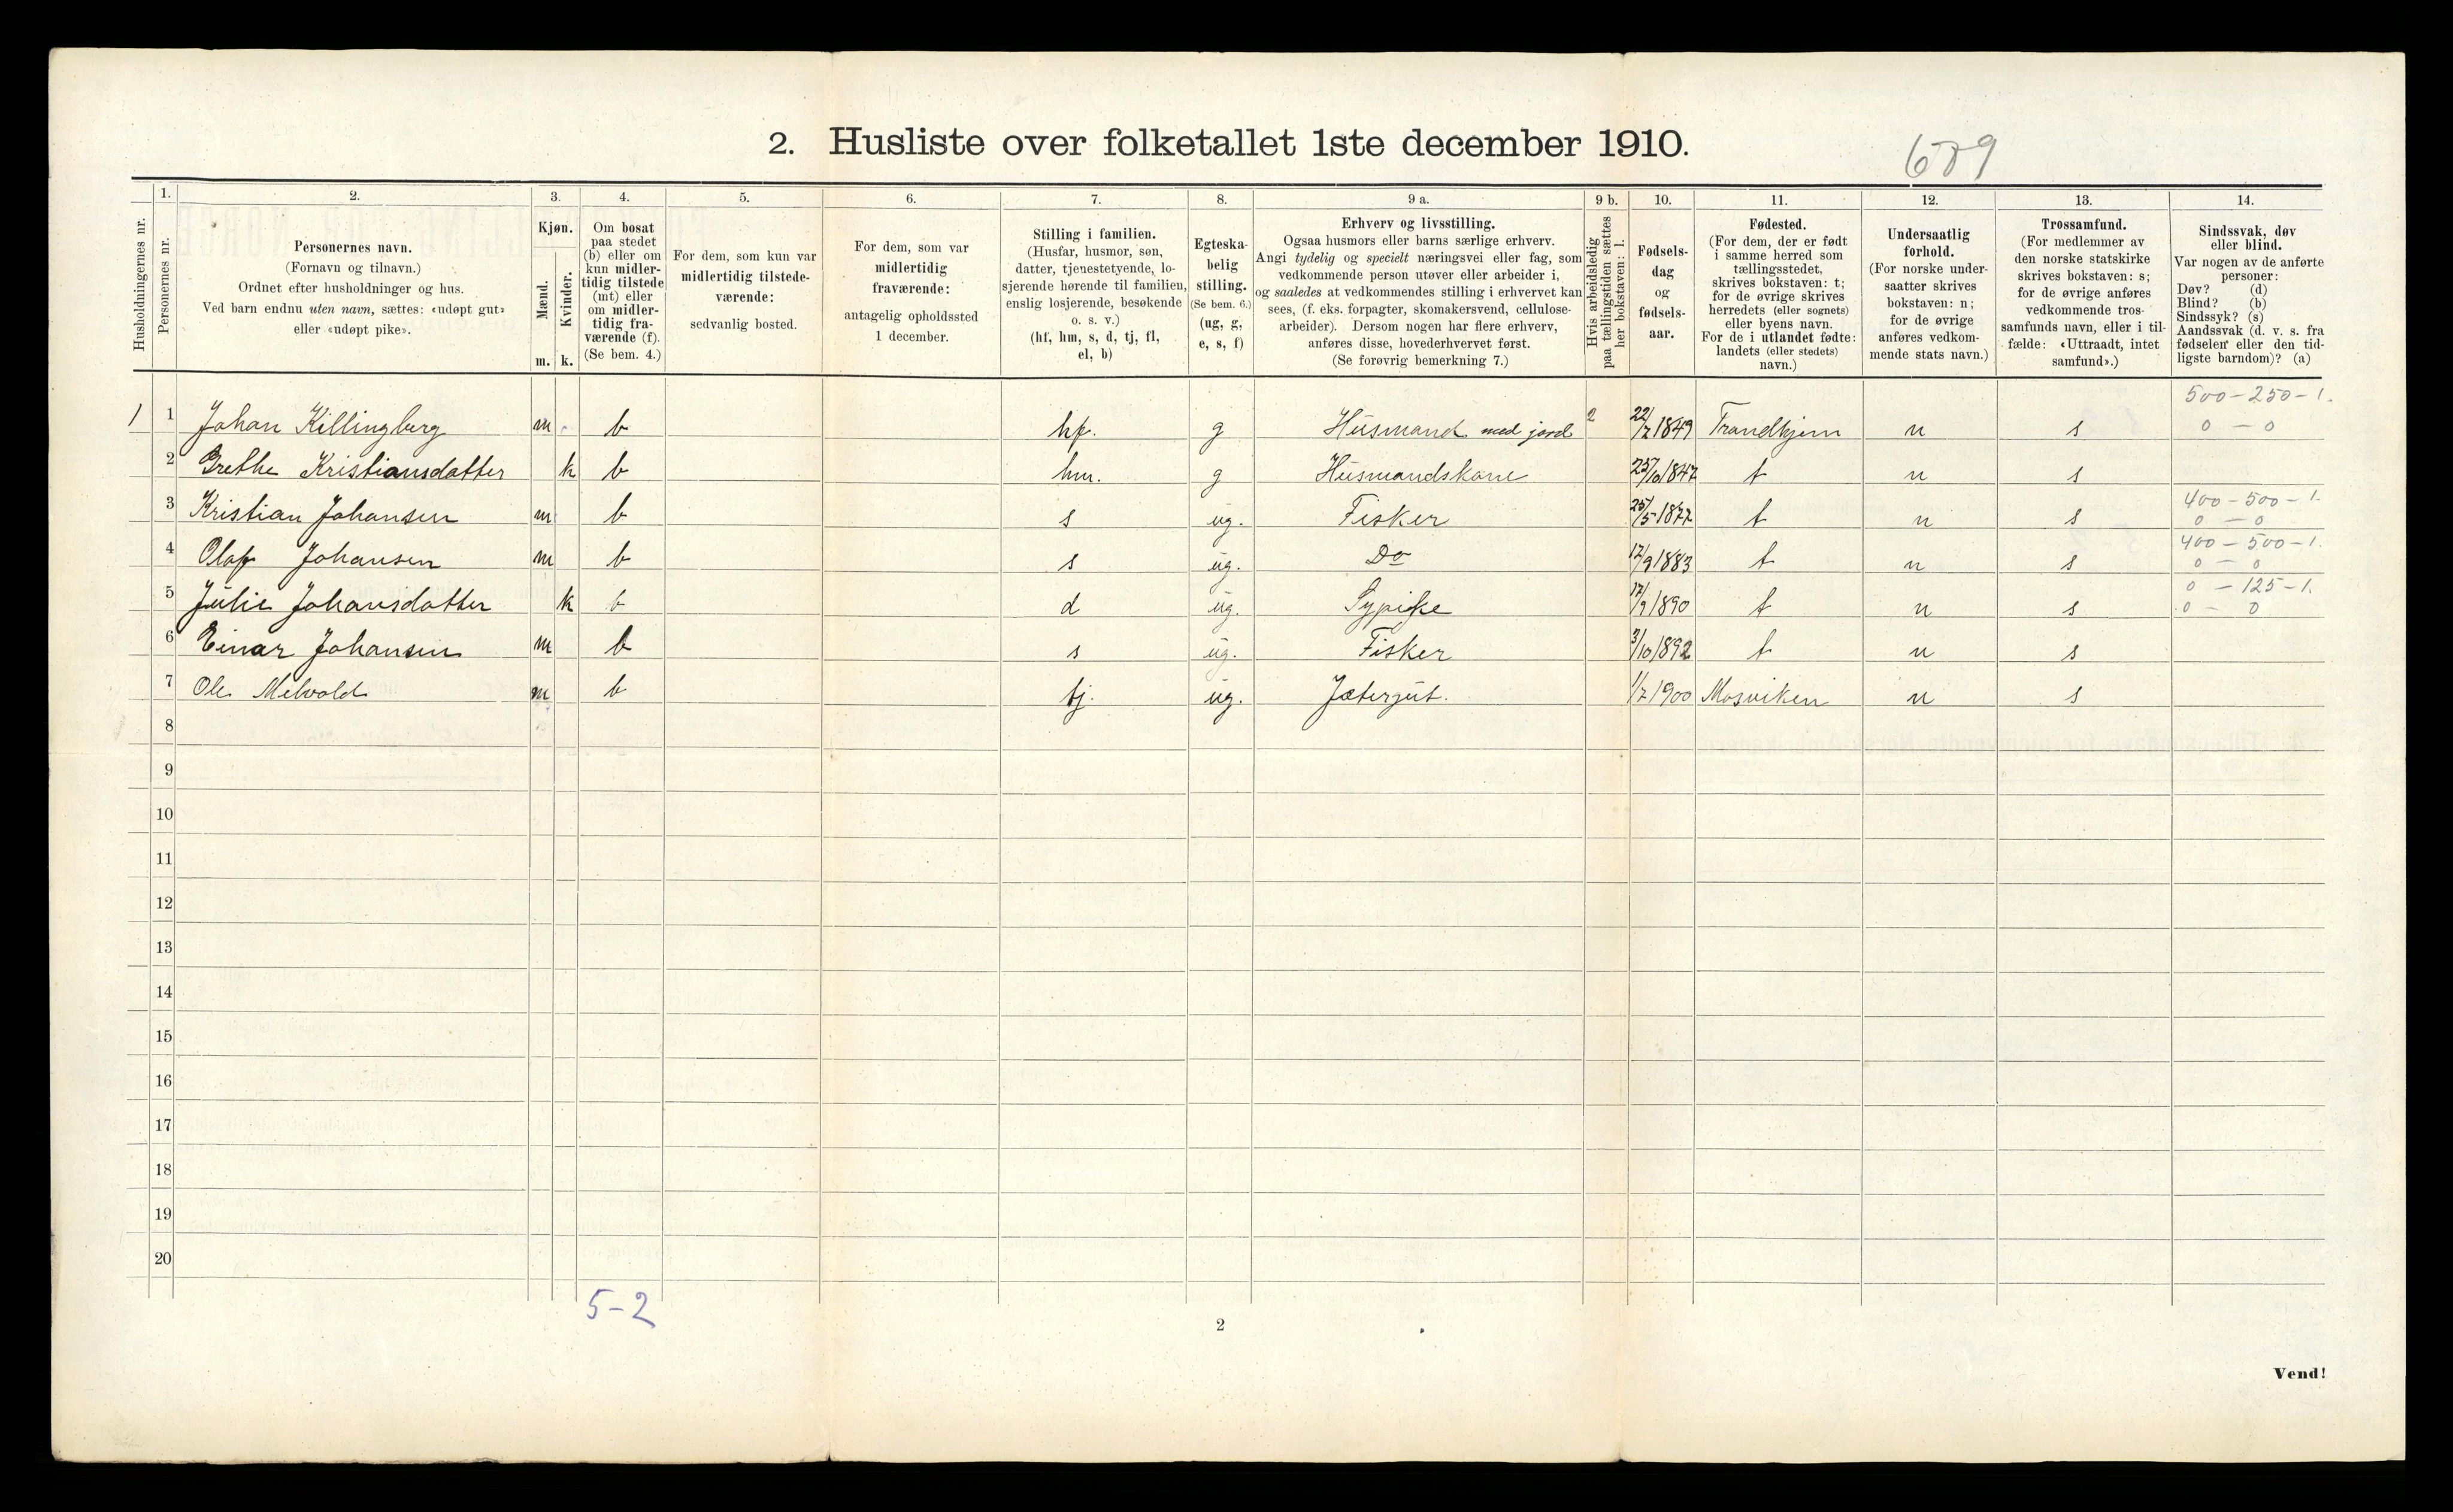 2. Husliste over folketallet 1ste december 1910.
689
Husholdningernes nr.
1.
Personernes nr.
2.
Personernes navn.
(Fornavn og tilnavn.)
Ordnet efter husholdninger og hus.
Ved barn endnu uten navn, sættes: «udøpt gut»
eller «udøpt pike».
3.
Kjøn.
Mænd.
Kvinder.
m. k.
4.
Om bosat
paa stedet
(b) eller om
kun midler-
tidig tilstede
(mt) eller
om midler-
tidig fra-
værende (f).
(Se bem. 4.)
5.
For dem, som kun var
midlertidig tilstede-
værende:
sedvanlig bosted.
6.
For dem, som var
midlertidig
fraværende:
antagelig opholdssted
1 december.
7.
Stilling i familien.
(Husfar, husmor, søn,
datter, tjenestetyende, lo-
sjerende hørende til familien,
enslig losjerende, besøkende
o. s. v.)
(hf, hm, s, d, tj, fl,
el, b)
8.
Egteska-
belig
stilling.
(Se bem. 6.)
(ug, g,
e, s, f)
9 a.
Erhverv og livsstilling.
Ogsaa husmors eller barns særlige erhverv.
Angi tydelig og specielt næringsvei eller fag, som
vedkommende person utøver eller arbeider i,
og saaledes at vedkommendes stilling i erhvervet kan
sees, (f. eks. forpagter, skomakersvend, cellulose-
arbeider). Dersom nogen har flere erhverv,
anføres disse, hovederhvervet først.
(Se forøvrig bemerkning 7.)
9 b.
Hvis arbeidsledig
paa tællingstiden sættes
her bokstaven: l.
10.
Fødsels-
dag
og
fødsels-
aar.
11.
Fødested.
(For dem, der er født
i samme herred som
tællingsstedet,
skrives bokstaven: t;
for de øvrige skrives
herredets (eller sognets)
eller byens navn.
For de i utlandet fødte:
landets (eller stedets)
navn.)
12.
Undersaatlig
forhold.
(For norske under-
saatter skrives
bokstaven: n;
for de øvrige
anføres vedkom-
mende stats navn.)
13.
Trossamfund.
(For medlemmer av
den norske statskirke
skrives bokstaven: s;
for de øvrige anføres
vedkommende tros-
samfunds navn, eller i til-
fælde: «Uttraadt, intet
samfund».)
14.
Sindssvak, døv
eller blind.
Var nogen av de anførte
personer:
Døv? (d)
Blind? (b)
Sindssyk? (s)
Aandssvak (d. v. s. fra
fødselen eller den tid-
ligste barndom)? (a)
500 - 250 - 1.
1 1 Johan Killingberg m b hf. g Husmand med jord 2 22/7 1849 Trondhjem n s 0 - 0
2 Grethe Kristiansdatter k b hm. g Husmandskone 25/10 1847 t n s
400 - 500 - 1.
3 Kristian Johansen m b s ug. Fisker 25/5 1877 t n s 0 - 0
400 - 500 - 1.
4 Olaf Johansen m b s ug. Do 17/9 1883 t n s 0 - 0
0 - 125 - 1.
5 Julie Johansdatter k b d ug. Sypike 17/9 1890 t n s 0 - 0
6 Einar Johansen m b s ug. Fisker 3/10 1892 t n s
7 Ole Melvold m b tj. ug. Jætergut. 1/7 1900 Mosviken n s
8
9
10
11
12
13
14
15
16
17
18
19
20
5-2
2
Vend!